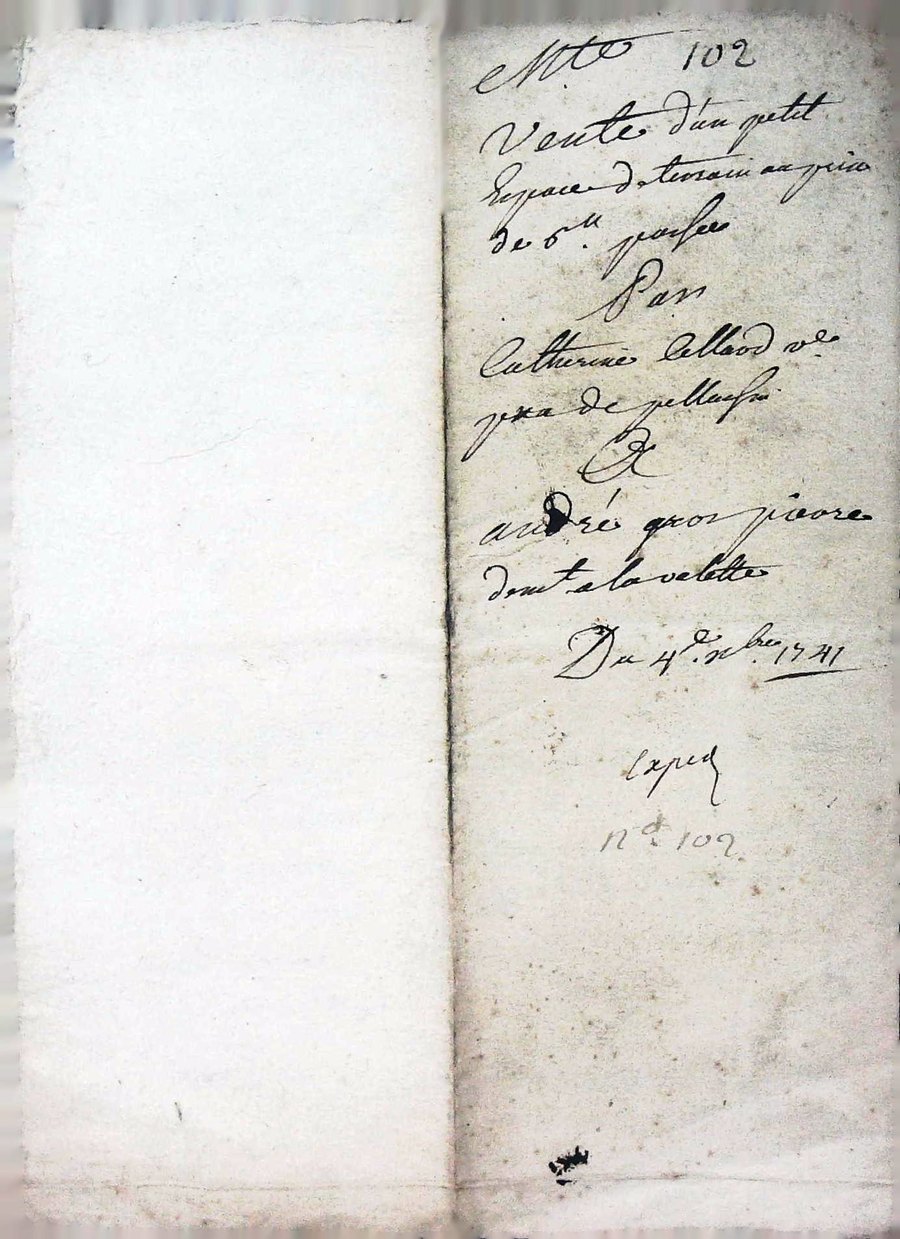 Mte 102
Vente d'un petit
Espace de terrain au prix
de 6ll. passée
Par
Catherine Cellard ve.
pra de
A
andré gros pierre
demt a la valette
Du 4e. xbre. 1741
exped
no. 102